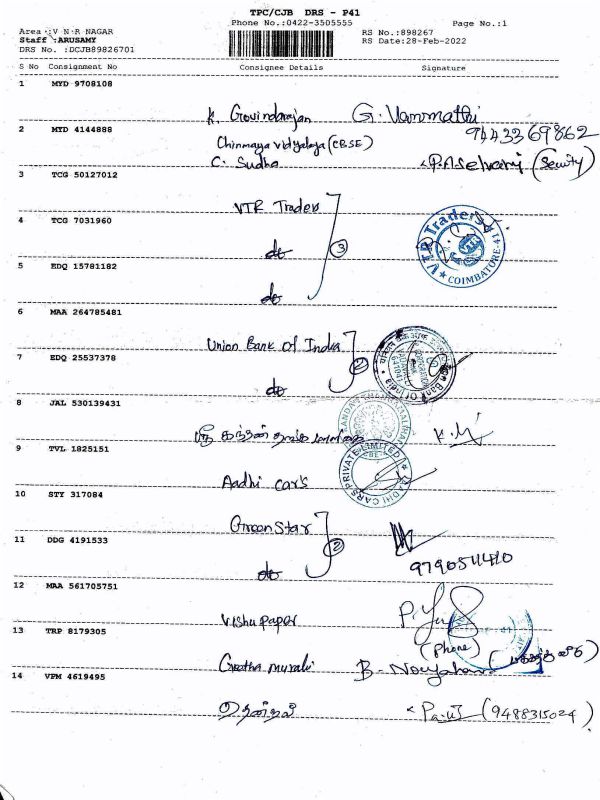 TPC/CJB DRS - P41
Phone No.:0422-3505555
Page No.:1
Area :V N R NAGAR
Staff :ARUSAMY
DRS No. :DCJB89826701
RS No.:898267
RS Date:28-Feb-2022
S No Consignment No Consignee Details Signature
1 MYD 9708108
K. Govindarajan G. Vanmathi
9443369862
2 MYD 4144888
Chinmaya vidyalaya (CBSE)
C. Sudha P.A Selvaraj (Security)
3 TCG 50127012
VTR Traders
4 TCG 7031960
do 3
VTR Traders
COIMBATORE-41
5 EDQ 15781182
do
6 MAA 264785481
Union Bank Of India
7 EDQ 25537378
do 2
8 JAL 530139431
ஸ்ரீ கந்தன்
9 TVL 1825151
Aadhi car's
AADHI CARS PRIVATE LIMITED
10 STY 317084
Green Star
11 DDG 4191533
2
do
9790511410
12 MAA 561705751
Vishu paper
13 TRP 8179305
(Phone)
Geetha murali
14 VPM 4619495
(9488315024)